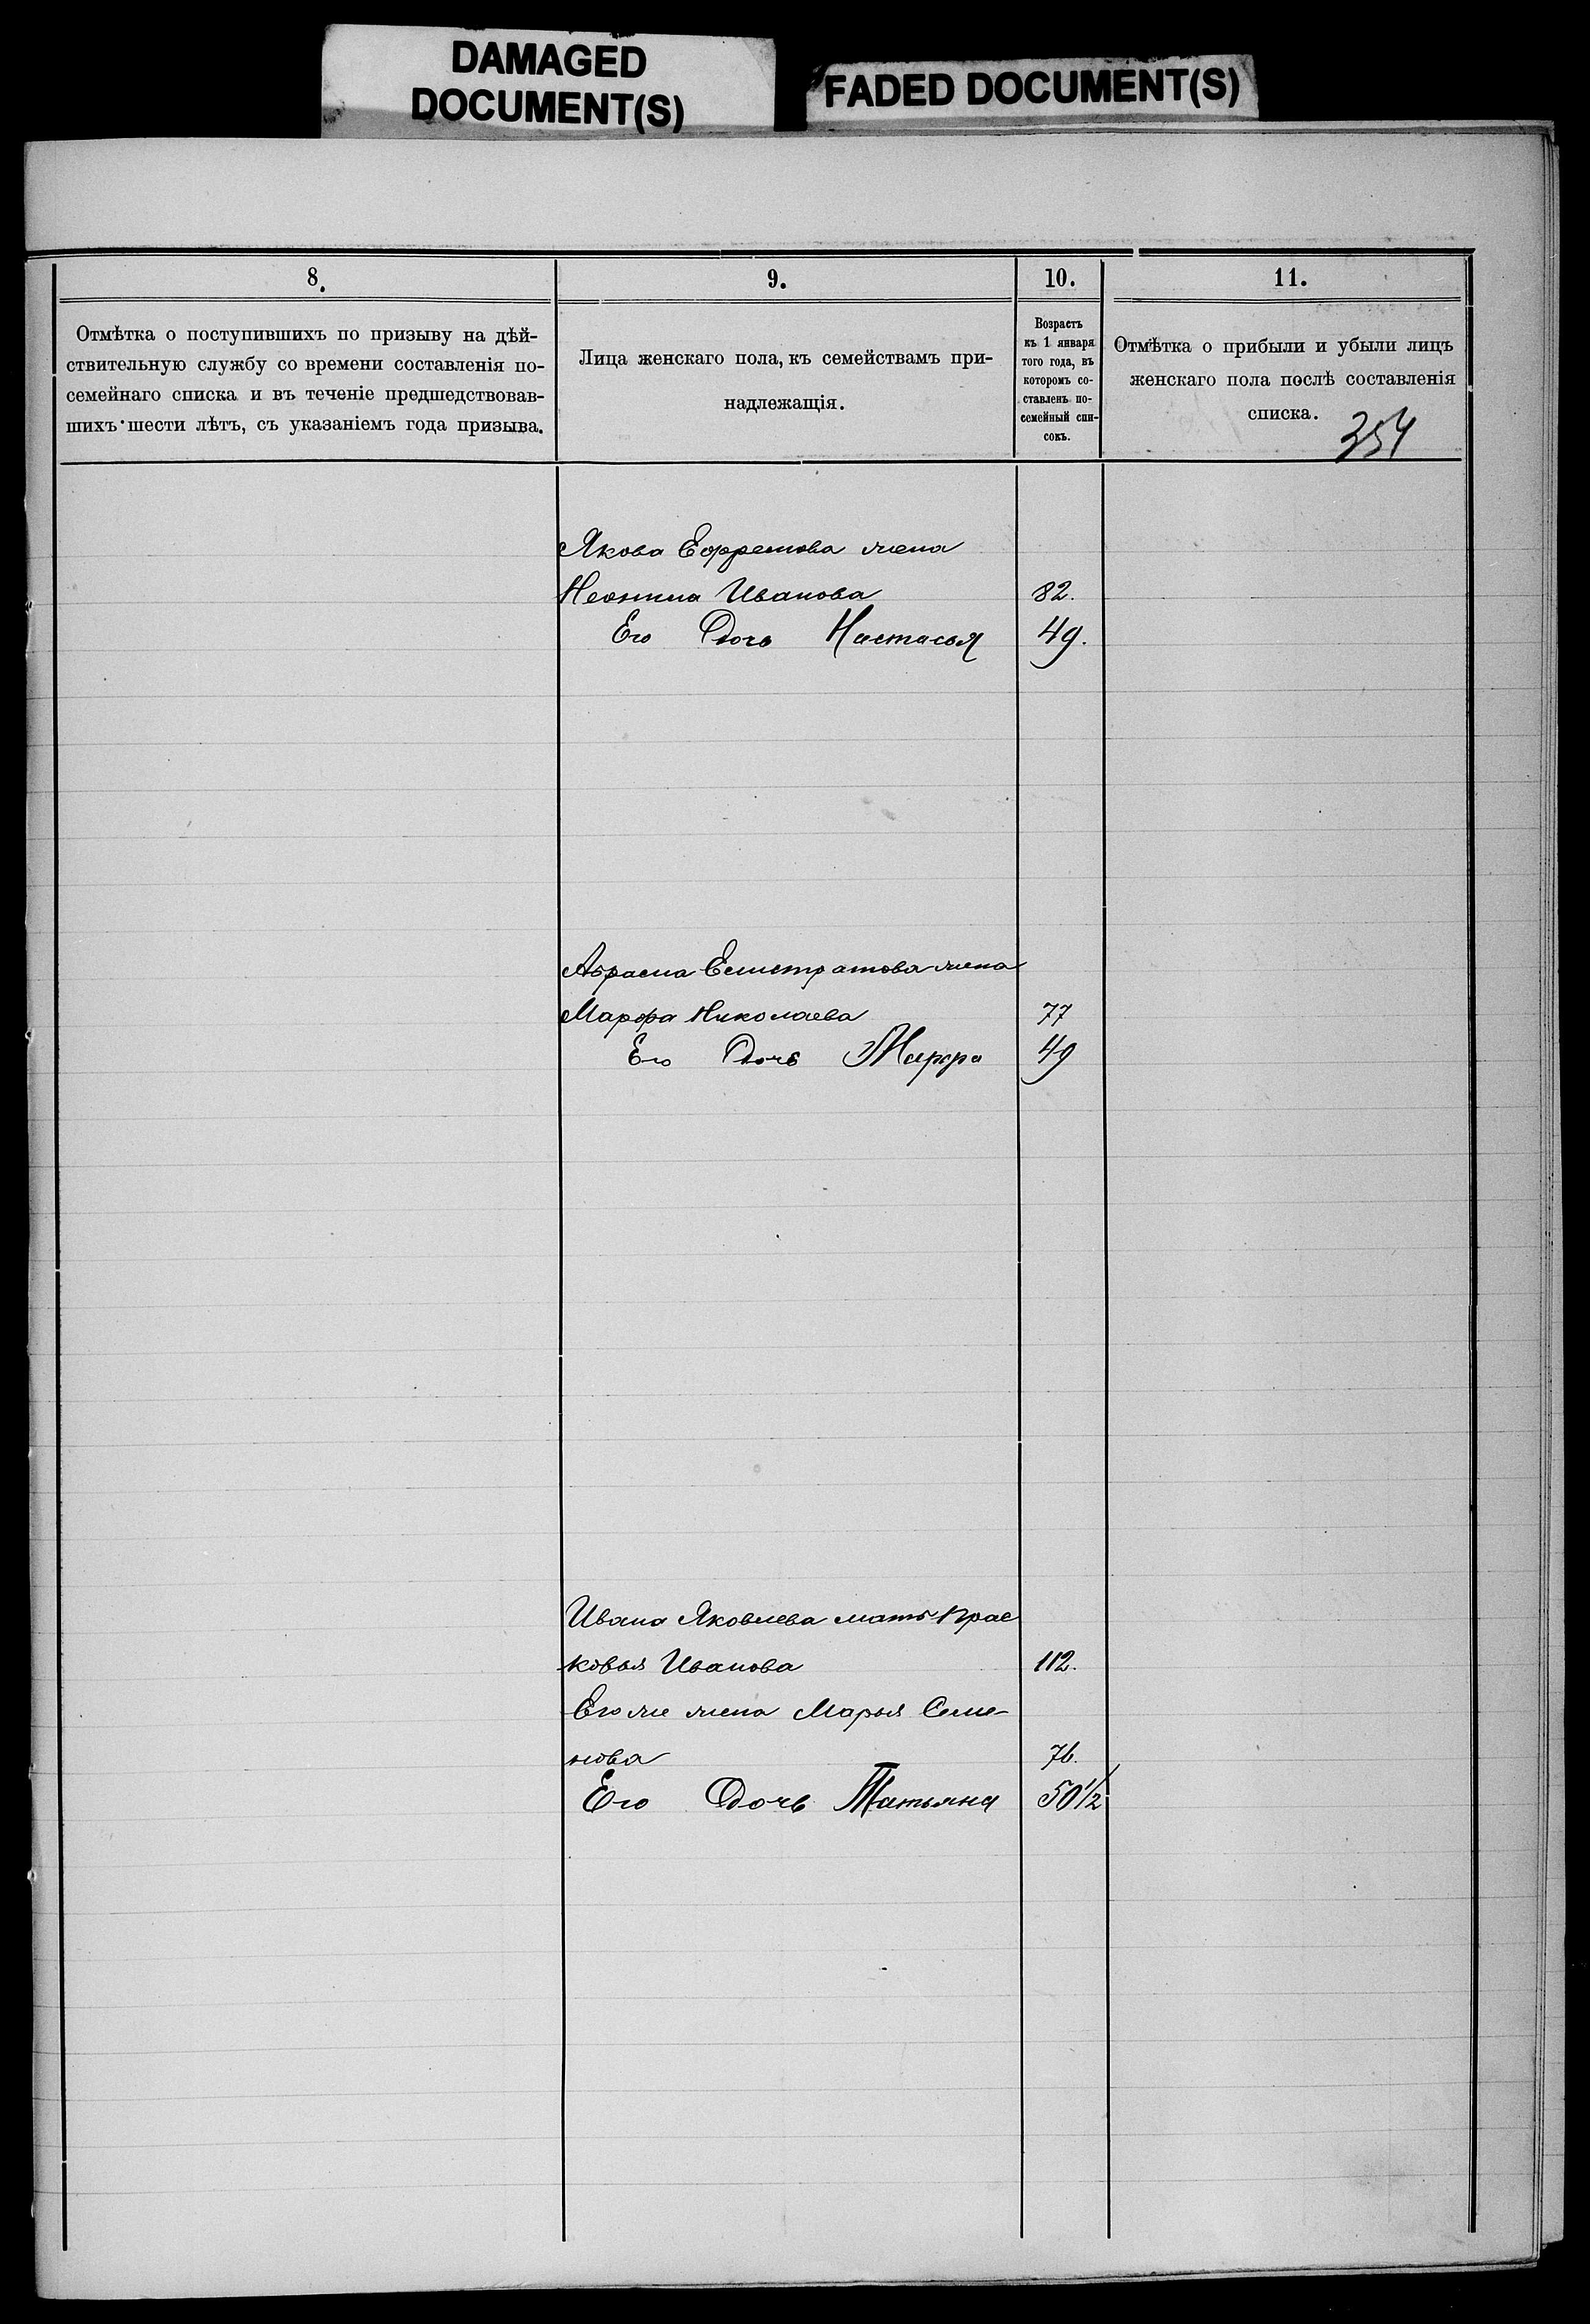 DAMAGED
DOCUMENT(S)
FADED DOCUMENT(S)
8.
Отмѣтка о поступившихъ по призыву на дѣй-
ствительную службу со времени составленія по-
семейнаго списка и въ теченіе предшедствовав-
шихъ шести лѣтъ, съ указаніемъ года призыва.
9.
Лица женскаго пола, къ семействамъ при-
надлежащія.
10.
Возрастъ
къ 1 января
того года, въ
которомъ со-
ставленъ по-
семейный спи-
сокъ.
11.
Отмѣтка о прибыли и убыли лицъ
женскаго пола послѣ составленія
списка.
354
Якова Ефремова жена
Неонила Иванова 82.
Его Дочь Настасья 49.
Абрама Елистратова жена
Марфа Николаева 77
Его Дочь Марфа 49
Ивана Яковлева мать Прас
ковья Иванова 112.
Его же жена Марья Семе-
нова 76.
Его Дочь Татьяна 50 1/2